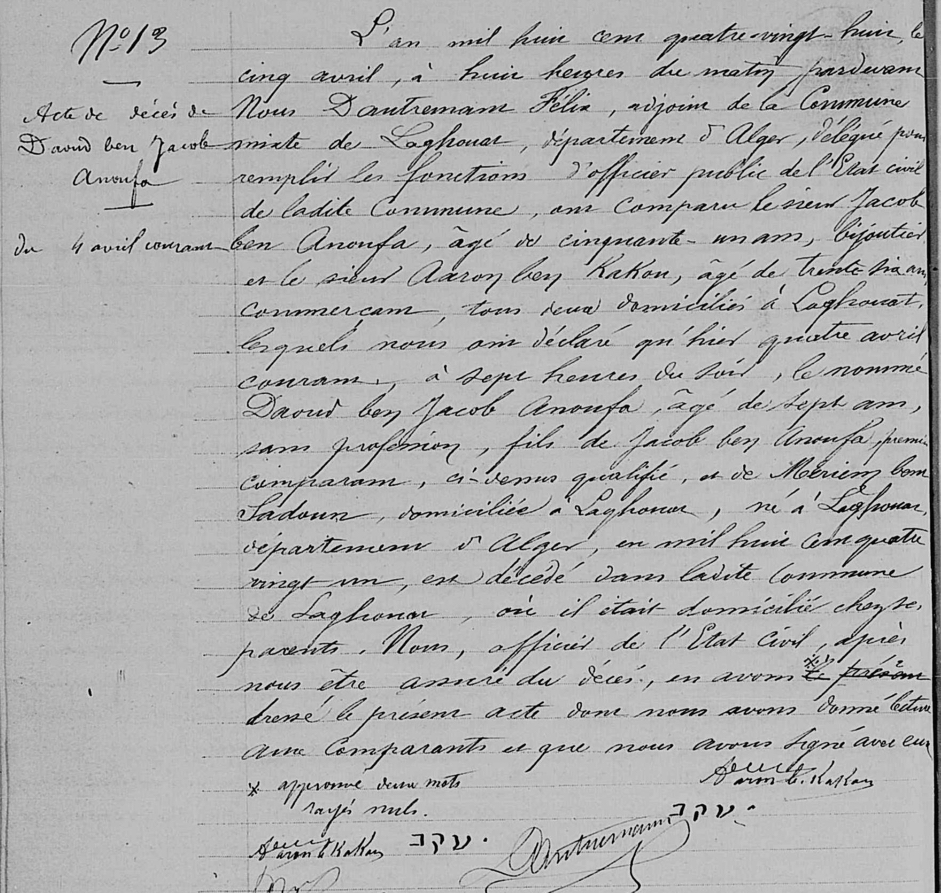 N° 13
Acte de décés de
Daoud ben Jacob
Anoufa
du 4 avril courant
L'an mil huit cent quatre-vingt-huit, le
cinq avril, à huit heures du matin pardevant
Nous Dautremant Félix, adjoint de la Commune
mixte de Laghouat, département d'Alger, délégué pour
remplir les fonctions d'officier public de l'Etat civil
de ladite Commune, ont comparu le sieur Jacob
ben Anoufa, âgé de cinquante-un ans, bijoutier
et le sieur Aaron ben Kakou, âgé de trente six ans
commerçant, tous deux domiciliés à Laghouat,
lesquels nous ont déclaré qu'hier quatre avril
courant, à sept heures du soir, le nommé
Daoud ben Jacob Anoufa, âgé de sept ans,
sans profession, fils de Jacob ben Anoufa premier
comparant, ci-dessus qualifié, et de Meriem bent
Sadoun, domiciliée à Laghouat, né à Laghouat,
département d'Alger, en mil huit cent quatre
vingt un, est décédé dans ladite Commune
de Laghouat, où il était domicilié chez ses
parents. Nous, officier de l'Etat Civil, après
nous être assuré du décés, en avons le présent
dressé le présent acte dont nous avons donné lecture
aux Comparants et que nous avons signé avec eux
x approuvé deux mots
rayés nuls.
Aaron b. Kakou
יעקב
Aaron b Kakou
יעקב
Dautremant